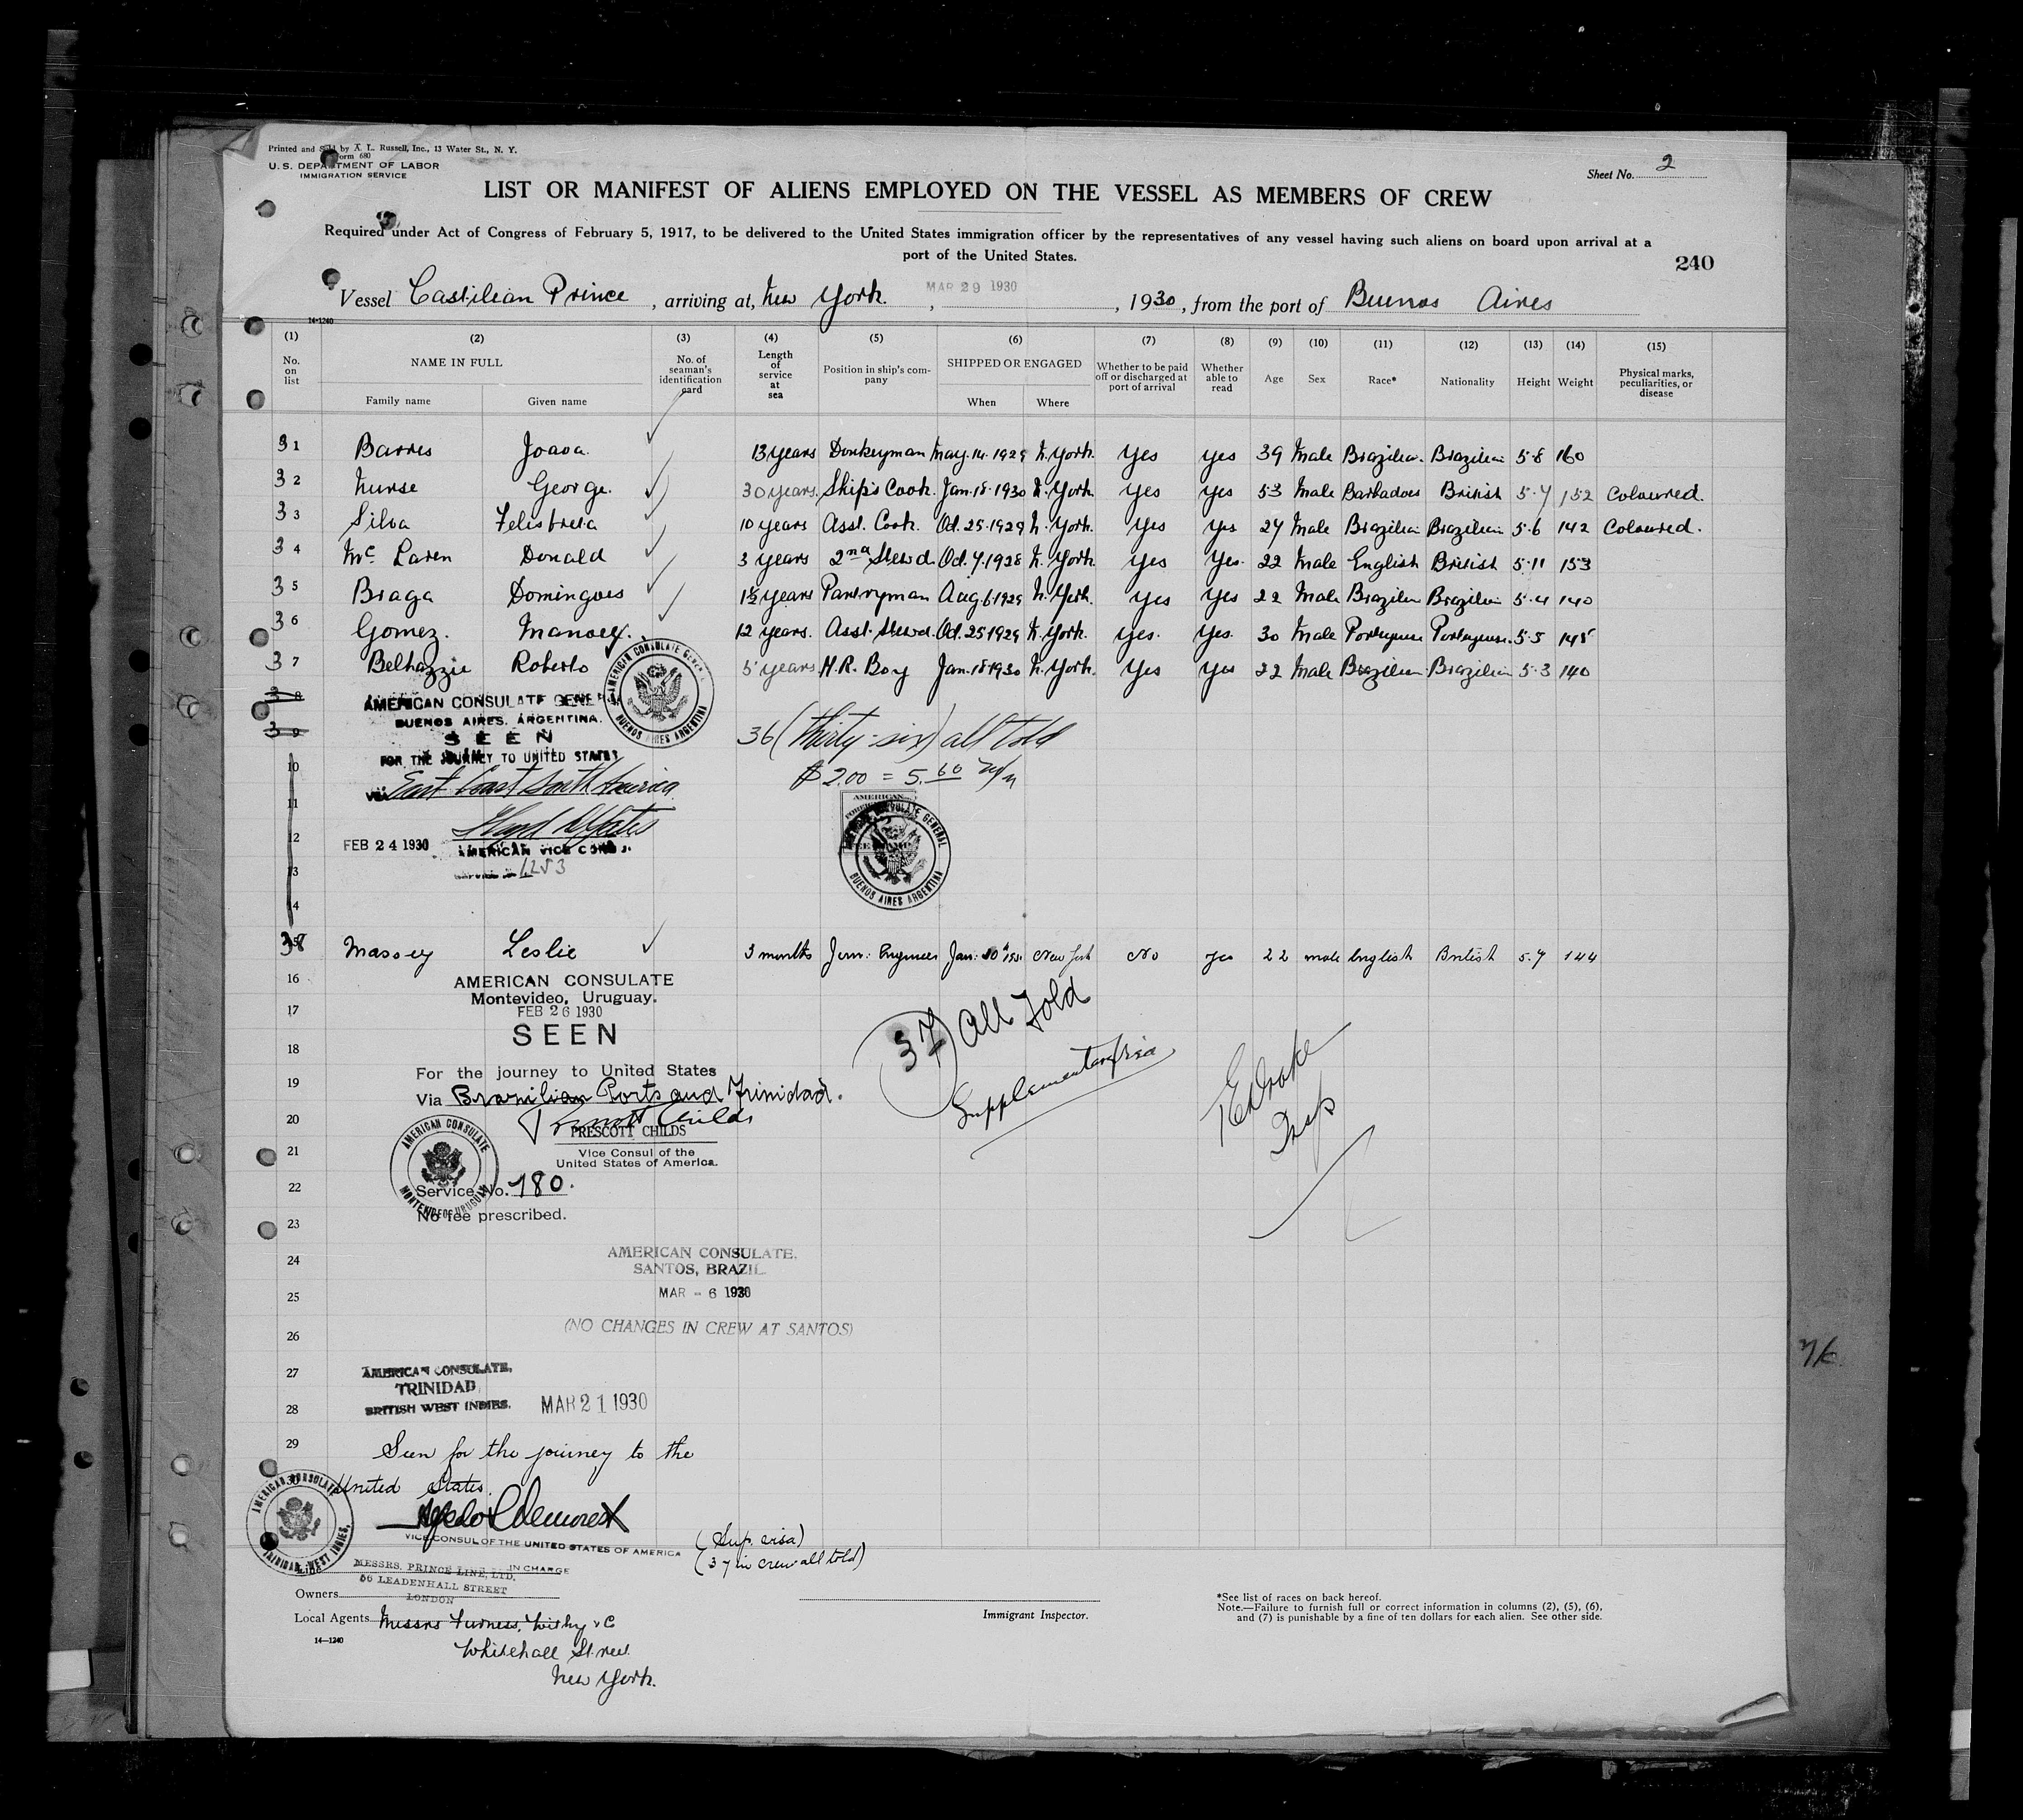 Printed and Sold by A. L. Russell, Inc., 13 Water St., N. Y.
Form 680
U. S. DEPARTMENT OF LABOR
IMMIGRATION SERVICE
Sheet No. 2
LIST OR MANIFEST OF ALIENS EMPLOYED ON THE VESSEL AS MEMBERS OF CREW
Required under Act of Congress of February 5, 1917, to be delivered to the United States immigration officer by the representatives of any vessel having such aliens on board upon arrival at a
port of the United States.
240
Vessel Castilian Prince, arriving at, New York. MAR 29 1930, 1930, from the port of Buenos Aires
14-1240
(1) (2) (3) (4) (5) (6) (7) (8) (9) (10) (11) (12) (13) (14) (15)
No. on list NAME IN FULL No. of seaman's identification card Length of service at sea Position in ship's company SHIPPED OR ENGAGED Whether to be paid off or discharged at port of arrival Whether able to read Age Sex Race* Nationality Height Weight Physical marks, peculiarities, or disease
Family name Given name When Where
31 Barres Joava. 13 years Donkeyman May. 14. 1929 N. York. Yes Yes 39 Male Brazilian. Brazilian 5-8 160
32 Nurse George. 30 years. Ship's Cook. Jan. 18. 1930 N. York. Yes Yes 53 Male Barbados British 5-7 152 Coloured.
33 Silva 10 years Asst. Cook. Oct. 25. 1929 N. York. Yes Yes 27 Male Brazilian Brazilian 5-6 142 Coloured.
34 McLaren Donald 3 years 2nd Stewd. Oct. 7. 1928 N. York. Yes Yes. 22 Male English British 5-11 153
35 Braga Domingoes 1½ years Pantryman Aug. 6. 1929 N. York. Yes Yes 22 Male Brazilian Brazilian 5-4 140
36 Gomez. Manoel. 12 years. Asst. Stewd. Oct. 25 1929 N. York. Yes. Yes. 30 Male Portuguese Portuguese. 5-5 145
37 Belhazzie Roberto 5 years M.R. Boy Jan. 18 1930 N. York. Yes Yes 22 Male Brazilian Brazilian 5-3 140
38
AMERICAN CONSULATE GENERAL
BUENOS AIRES, ARGENTINA.
39
SEEN
36 (thirty-six) all told
FOR THE JOURNEY TO UNITED STATES
10
$2.00 = 5.60 m/n
VIA East Coast South America
11
12
FEB 24 1930
AMERICAN VICE CONSUL
13
1253
AMERICAN CONSULATE GENERAL
BUENOS AIRES ARGENTINA
AMERICAN CONSULATE GENERAL
BUENOS AIRES ARGENTINA
14
38 Massey Leslie 3 months Jun. Engineer Jan: New York No yes 22 male English British 5.7 144
16
AMERICAN CONSULATE
Montevideo, Uruguay.
17
FEB 26 1930
SEEN
(37) All Told
Supplementary visa
18
For the journey to United States
19
Via Brazilian Ports and Trinidad.
20
Prescott Childs
PRESCOTT CHILDS
21
Vice Consul of the
United States of America.
22
Service No. 180.
AMERICAN CONSULATE
MONTEVIDEO, URUGUAY
No fee prescribed.
23
Insp
24
AMERICAN CONSULATE,
SANTOS, BRAZIL
25
MAR - 6 1930
26
(NO CHANGES IN CREW AT SANTOS)
27
AMERICAN CONSULATE,
TRINIDAD,
28
BRITISH WEST INDIES. MAR 21 1930
29
Seen for the journey to the
30
United States.
AMERICAN CONSULATE
TRINIDAD, WEST INDIES.
VICE CONSUL OF THE UNITED STATES OF AMERICA
IN CHARGE
(Sup. visa)
(37 in crew all told)
Line
MESSRS. PRINCE LINE, LTD.
56 LEADENHALL STREET
Owners LONDON
Local Agents Messrs Furness, Withy & C
Whitehall Street
New York.
14-1240
Immigrant Inspector.
*See list of races on back hereof.
Note.—Failure to furnish full or correct information in columns (2), (5), (6),
and (7) is punishable by a fine of ten dollars for each alien. See other side.